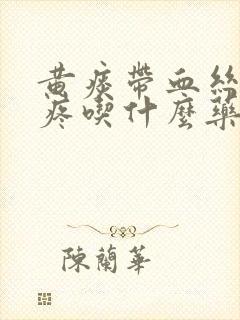 黄痰帶血絲
疼喫什麼藥
陳蘭華